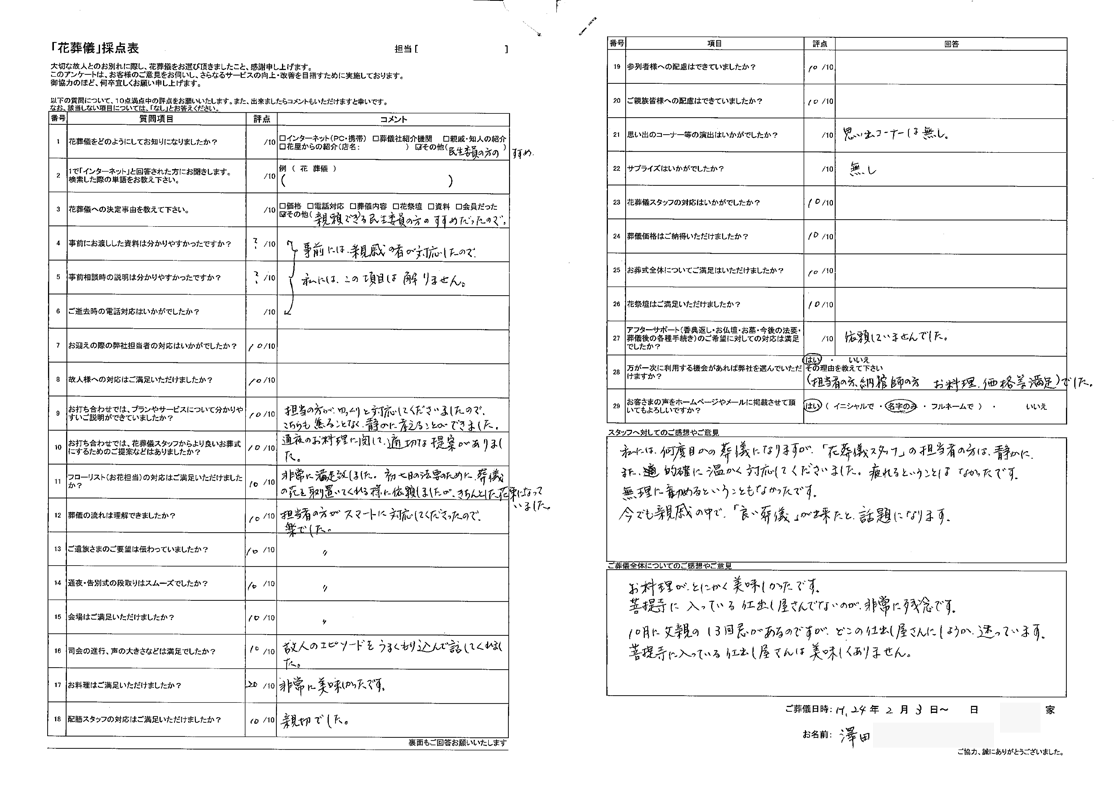 「花葬儀」採点表
担当 [ ]
大切な故人とのお別れに際し、花葬儀をお選び頂きましたこと、感謝申し上げます。
このアンケートは、お客様のご意見をお伺いし、さらなるサービスの向上・改善を目指すために実施しております。
御協力のほど、何卒宜しくお願い申し上げます。
以下の質問について、10点満点中の評点をお願いいたします。また、出来ましたらコメントもいただけますと幸いです。
なお、該当しない項目については、「なし」とお答えください。
番号 質問項目 評点 コメント
1 花葬儀をどのようにしてお知りになりましたか? /10 □インターネット(PC・携帯) □葬儀社紹介機関 □親戚・知人の紹介
□花屋からの紹介(店名: ) ☑その他( 民生委員の方の ) すすめ.
2 1で「インターネット」と回答された方にお聞きします。
検索した際の単語をお教え下さい。 /10 例 ( 花 葬儀 )
( )
3 花葬儀への決定事由を教えて下さい。 /10 □価格 □電話対応 □葬儀内容 □花祭壇 □資料 □会員だった
☑その他( 親頼できる民生委員の方のすすめだったので。
4 事前にお渡しした資料は分かりやすかったですか? ? /10 事前には、親戚の者が対応したので
5 事前相談時の説明は分かりやすかったですか? ? /10 私には、この項目は解りません。
6 ご逝去時の電話対応はいかがでしたか? /10
7 お迎えの際の弊社担当者の対応はいかがでしたか? 10/10
8 故人様への対応はご満足いただけましたか? 10/10
9 お打ち合わせでは、プランやサービスについて分かりや
すいご説明ができていましたか? 10/10 担当の方が、ゆっくりと対応してくださいましたので、
こちらも焦ることなく、静かに考えることができました。
10 お打ち合わせでは、花葬儀スタッフからより良いお葬式
にするためのご提案などはありましたか? 10/10 通夜のお料理に関して、適切な提案がありまし
た。
11 フローリスト(お花担当)の対応はご満足いただけました
か? 10/10 非常に満足致しました。初七日の法要のために、葬儀
の花を取置いてくれる様に依頼しましたが、きちんとした花束になって
いました。
12 葬儀の流れは理解できましたか? 10/10 担当者の方がスマートに対応してくださったので、
楽でした。
13 ご遺族さまのご要望は伝わっていましたか? 10/10 〃
14 通夜・告別式の段取りはスムーズでしたか? 10/10 〃
15 会場はご満足いただけましたか? 10/10 〃
16 司会の進行、声の大きさなどは満足でしたか? 10/10 故人のエピソードをうまくもり込んで話してくれまし
た。
17 お料理はご満足いただけましたか? 20/10 非常に美味しかったです。
18 配膳スタッフの対応はご満足いただけましたか? 10/10 親切でした。
裏面もご回答お願いいたします
番号 項目 評点 回答
19 参列者様への配慮はできていましたか? 10/10
20 ご親族皆様への配慮はできていましたか? 10/10
21 思い出のコーナー等の演出はいかがでしたか? /10 思い出コーナーは無し。
22 サプライズはいかがでしたか? /10 無し
23 花葬儀スタッフの対応はいかがでしたか? 10/10
24 葬儀価格はご納得いただけましたか? 10/10
25 お葬式全体についてご満足はいただけましたか? 10/10
26 花祭壇はご満足いただけましたか? 10/10
27 アフターサポート(香典返し・お仏壇・お墓・今後の法要・
葬儀後の各種手続き)のご希望に対しての対応は満足
でしたか? /10 依頼していませんでした。
28 万が一次に利用する機会があれば弊社を選んでいただ
けますか? はい ・ いいえ
その理由を教えて下さい
(担当者の方、納棺師の方 お料理、価格等満足)でした。
29 お客さまの声をホームページやメールに掲載させて頂
いてもよろしいですか? はい ( イニシャルで ・ 名字のみ ・ フルネームで ) ・ いいえ
スタッフへ対してのご感想やご意見
私には、何度目かの葬儀になりますが、「花葬儀スタッフ」の担当者の方は、静かに、
また、適 的確に温かく対応してくださいました。疲れるということはなかったです。
無理に奮めるということもなかったです。
今でも親戚の中で、「良い葬儀」が出来たと、話題になります。
ご葬儀全体についてのご感想やご意見
お料理が、とにかく美味しかったです。
菩提寺に入っている仕出し屋さんでないのが、非常に残念です。
10月に父親の13回忌があるのですが、どこの仕出し屋さんにしようか、迷っています。
菩提寺に入っている仕出し屋さんは美味しくありません。
ご葬儀日時: H.24年 2月 3日～ 日 家
お名前: 澤田
ご協力、誠にありがとうございました。